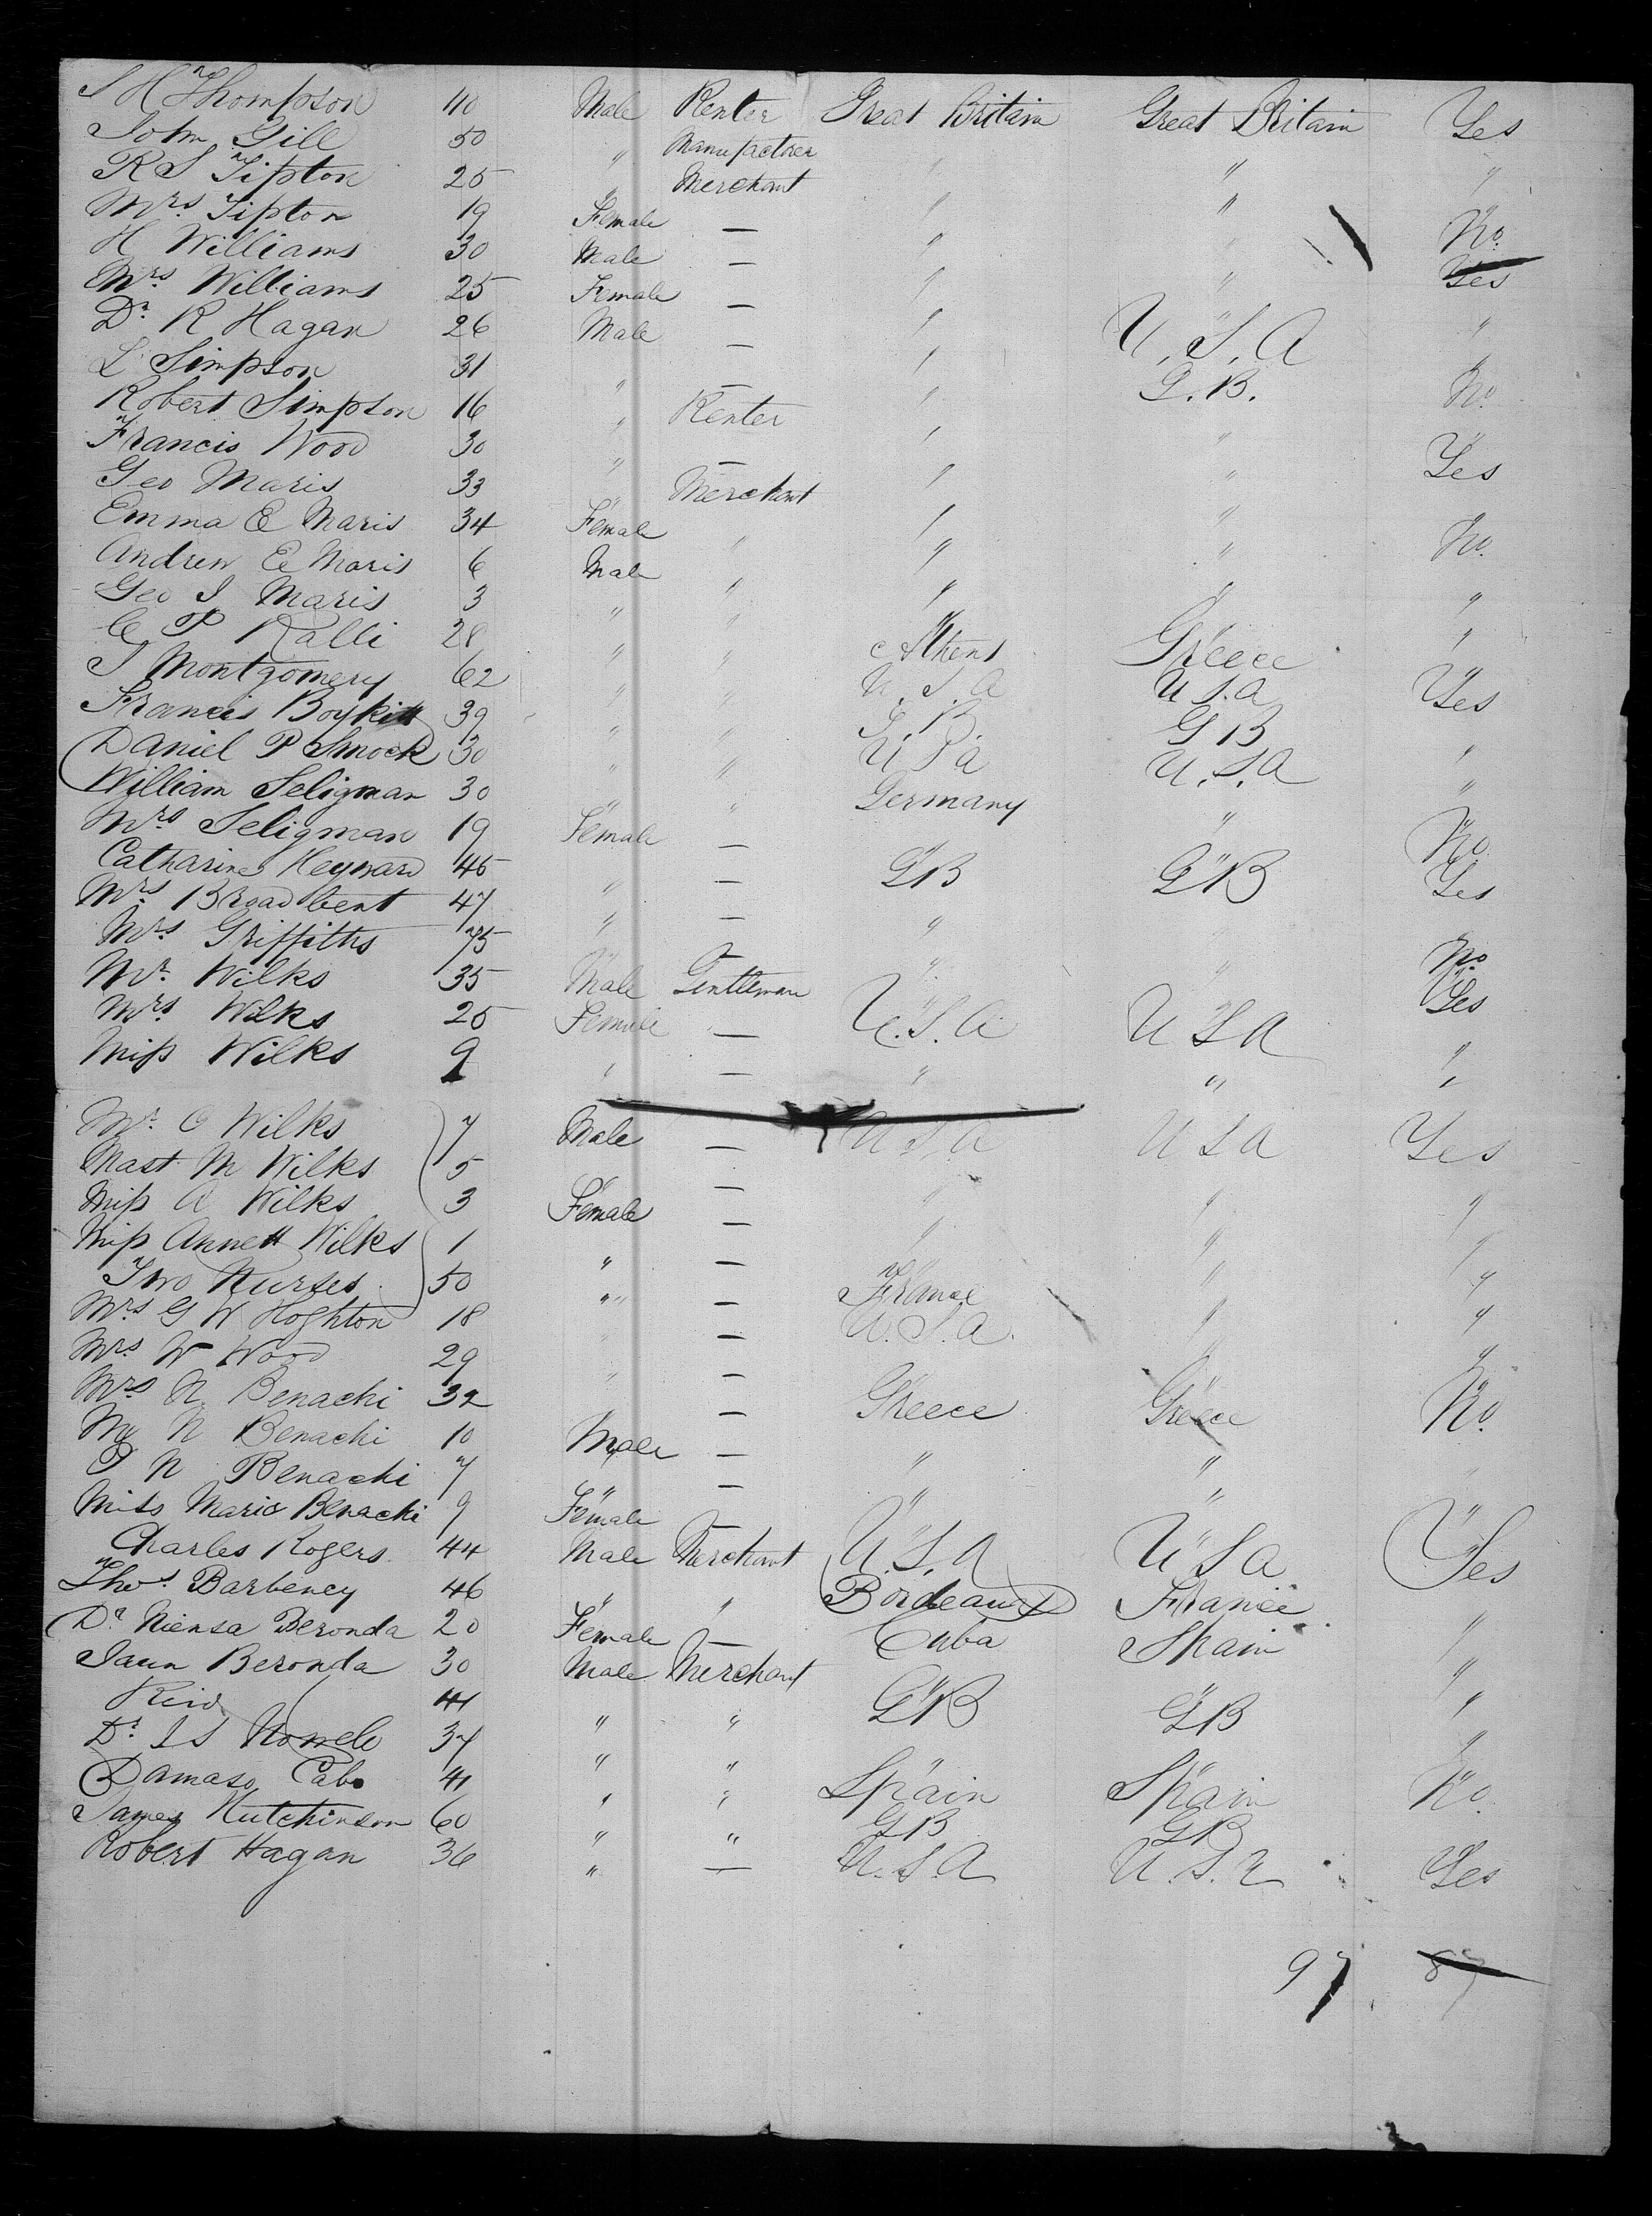 S H Thompson 40 Male Renter Great Britain Great Britain Yes
John Gill 50 " Manufactorer " " "
R S Tipton 25 " Merchant " "
Mrs. Tipton 19 Female — " No.
H Williams 30 Male — " " Yes
Mrs. Williams 25 Female — "
Dr. R Hagan 26 Male — " U.S.A "
L Simpson 31 " — " G.B. No.
Robert Simpson 16 " Renter " "
Francis Wood 30 " — " " Yes
Geo Maris 33 " Merchant " " "
Emma E Maris 34 Female " " " No.
Andrew E Maris 6 Male " " " "
Geo S Maris 3 " " " " "
C P Ralli 28 " " Athens Greece "
S Montgomery 62 " " U.S.A U S.A Yes
Francis Boykin 39 " " G.B. G B "
Daniel P Smock 30 " " U S A U.S.A "
William Seligman 30 " " Germany " "
Mrs Seligman 19 Female — " " No
Catharine Heyward 45 " — GB GB Yes
Mrs. Broadbent 47 " — " "
Mrs Griffiths 75 " — " " No
Mr. Wilks 35 Male Gentleman " " Yes
Mrs. Wilks 25 Female — U.S.A U S A "
Miss Wilks 9 " — " " "
Mr. O Wilks 7 Male — U S A U S A Yes
Mast. M Wilks 5 " — " " "
Miss A Wilks 3 Female — " " "
Miss Annett Wilks 1 " — " " "
Two Nurses 50 " — France " "
Mrs G W Hoghton 18 " — U.S.A. " "
Mrs. W Wood 29 " — " " "
Mrs. N. Benachi 32 " — Greece Greece No.
N Benachi 10 Male — " " "
P N Benachi 7 " — " " "
Miss Maria Benachi 9 Female — " " "
Charles Rogers 44 Male Merchant U.S.A U S A Yes
Thos. Barbency 46 " " Bordeaux France "
Da. Niensa Beronda 20 Female — Cuba Spain "
Jaun Beronda 30 Male Merchant " " "
Reid 41 " " GB GB "
Dr. J S 37 " " " " "
Damaso Cabo 41 " " Spain Spain No.
James Hutchinson 60 " " GB GB "
Robert Hagan 36 " — U.S.A U.S.A Yes
97 87